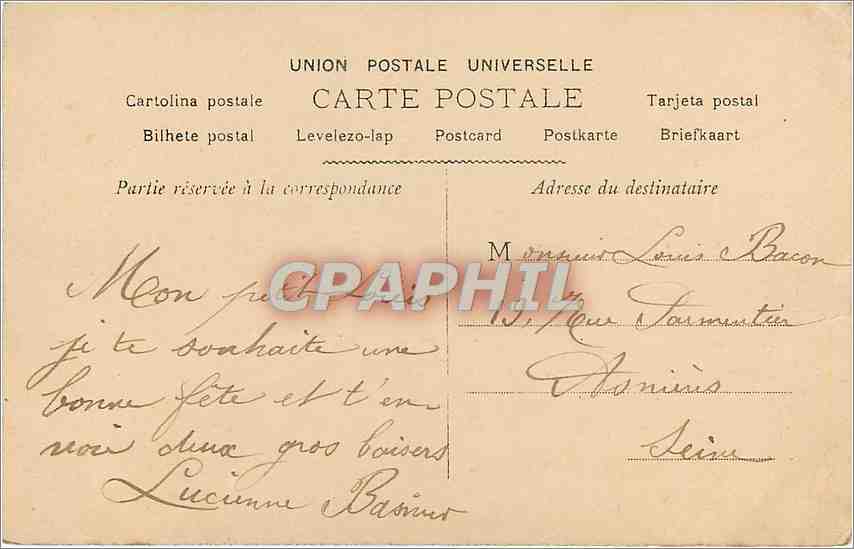 UNION POSTALE UNIVERSELLE
Cartolina postale CARTE POSTALE Tarjeta postal
Bilhete postal Levelezo-lap Postcard Postkarte Briefkaart
Partie réservée à la correspondance
Adresse du destinataire
Mon petit Louis
je te souhaite une
bonne fête et t'en-
voie deux gros baisers
Lucienne
Monsieur Louis Bacon
19, Rue Parmentier
Asnières
Seine
CPAPHIL